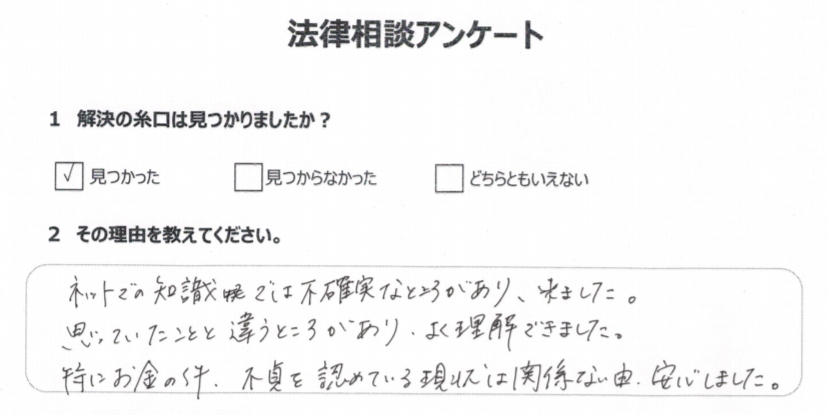 法律相談アンケート
1 解決の糸口は見つかりましたか？
☑見つかった □見つからなかった □どちらともいえない
2 その理由を教えてください。
ネットでの知識では不確実なところがあり、来ました。
思っていたことと違うところがあり、よく理解できました。
特にお金の件、不貞を認めている現状では関係ない由、安心しました。